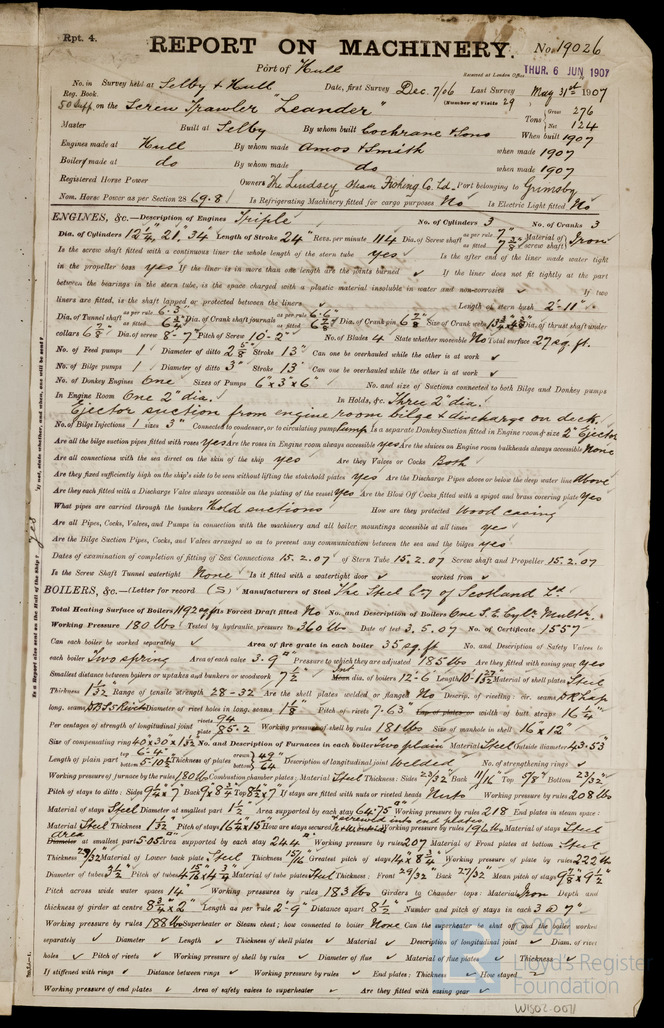 Rpt. 4.
REPORT ON MACHINERY. No. 19026
Port of Hull
Received at London Office THUR. 6 JUN 1907
No. in Survey held at Selby & Hull Date, first Survey Dec. 7/06 Last Survey May 31st 1907
Reg. Book.
50 Supp. on the Screw Trawler "Leander" (Number of Visits 29
Tons Gross 276 Net 124
Master Built at Selby By whom built Cochrane & Sons When built 1907
Engines made at Hull By whom made Amos & Smith when made 1907
Boilers made at do By whom made do when made 1907
Registered Horse Power Owners The Lindsey Steam Fishing Co. Ld. Port belonging to Grimsby
Nom. Horse Power as per Section 28 69.8 Is Refrigerating Machinery fitted for cargo purposes No Is Electric Light fitted No
ENGINES, &c.—Description of Engines Triple No. of Cylinders 3 No. of Cranks 3
Dia. of Cylinders 12 1/4", 21", 34" Length of Stroke 24" Revs. per minute 114 Dia. of Screw shaft as per rule 7" as fitted 7 3/8" Material of screw shaft Iron
Is the screw shaft fitted with a continuous liner the whole length of the stern tube yes Is the after end of the liner made water tight
in the propeller boss yes If the liner is in more than one length are the joints burned ✓ If the liner does not fit tightly at the part
between the bearings in the stern tube, is the space charged with a plastic material insoluble in water and non-corrosive ✓ If two
liners are fitted, is the shaft lapped or protected between the liners ✓ Length of stern bush 2'-11"
Dia. of Tunnel shaft as per rule 6.3" as fitted 6 3/4" Dia. of Crank shaft journals as per rule 6.6 as fitted 6 7/8" Dia. of Crank pin 6 7/8" Size of Crank webs Dia. of thrust shaft under
collars 6 7/8" Dia. of screw 8'-7" Pitch of Screw 10'-2" No. of Blades 4 State whether moveable No Total surface 27 sq. ft.
No. of Feed pumps 1 Diameter of ditto 2 5/8" Stroke 13" Can one be overhauled while the other is at work ✓
No. of Bilge pumps 1 Diameter of ditto 3" Stroke 13" Can one be overhauled while the other is at work ✓
No. of Donkey Engines One Sizes of Pumps 6"x3"x6" No. and size of Suctions connected to both Bilge and Donkey pumps
In Engine Room One 2" dia. In Holds, &c. Three 2" dia.
Ejector suction from engine room bilge & discharge on deck.
No. of Bilge Injections 1 sizes 3" Connected to condenser, or to circulating pump pump Is a separate Donkey Suction fitted in Engine room & size 2" Ejector
Are all the bilge suction pipes fitted with roses yes Are the roses in Engine room always accessible yes Are the sluices on Engine room bulkheads always accessible None
Are all connections with the sea direct on the skin of the ship yes Are they Valves or Cocks Both
Are they fixed sufficiently high on the ship's side to be seen without lifting the stokehold plates yes Are the Discharge Pipes above or below the deep water line Above
Are they each fitted with a Discharge Valve always accessible on the plating of the vessel yes Are the Blow Off Cocks fitted with a spigot and brass covering plate yes
What pipes are carried through the bunkers Hold suctions How are they protected Wood casing
Are all Pipes, Cocks, Valves, and Pumps in connection with the machinery and all boiler mountings accessible at all times yes
Are the Bilge Suction Pipes, Cocks, and Valves arranged so as to prevent any communication between the sea and the bilges yes
Dates of examination of completion of fitting of Sea Connections 15.2.07 of Stern Tube 15.2.07 Screw shaft and Propeller 15.2.07
Is the Screw Shaft Tunnel watertight None Is it fitted with a watertight door ✓ worked from ✓
BOILERS, &c.—(Letter for record (S) Manufacturers of Steel The Steel Coy of Scotland Ld
Total Heating Surface of Boilers 1192 sq ft Is Forced Draft fitted No No. and Description of Boilers One S.E. Cylr. Multr.
Working Pressure 180 lbs Tested by hydraulic pressure to 360 lbs Date of test 3.5.07 No. of Certificate 1557
Can each boiler be worked separately ✓ Area of fire grate in each boiler 35 sq. ft No. and Description of Safety Valves to
each boiler Two spring Area of each valve 3.9" Pressure to which they are adjusted 185 lbs Are they fitted with easing gear yes
Smallest distance between boilers or uptakes and bunkers or woodwork 7 1/2" dia. of boilers 12-6 Length Material of shell plates Steel
Thickness 1 1/32" Range of tensile strength 28-32 Are the shell plates welded or flanged No Descrip. of riveting: cir. seams D.R. Lap
long. seams Diameter of rivet holes in long. seams 1 1/8" Pitch of rivets 7.63" Lap of plates or width of butt straps 16 1/4"
Per centages of strength of longitudinal joint rivets 94 plate 85.2 Working pressure of shell by rules 181 lbs Size of manhole in shell 16"x12"
Size of compensating ring 40"x30"x1 1/32" No. and Description of Furnaces in each boiler Two plain Material Steel Outside diameter 43.53"
Length of plain part top 6'-4" bottom Thickness of plates 49/64" Description of longitudinal joint Welded No. of strengthening rings ✓
Working pressure of furnace by the rules 180 lbs Combustion chamber plates: Material Steel Thickness: Sides 23/32" Back 11/16" Top 5/8" Bottom 23/32"
Pitch of stays to ditto: Sides 9 1/2"x7" Back 9"x8 3/4" Top 8 1/2"x7" If stays are fitted with nuts or riveted heads Nuts Working pressure by rules 208 lbs
Material of stays Steel Diameter at smallest part 1 1/2" Area supported by each stay 64.75" Working pressure by rules 218 End plates in steam space:
Material Steel Thickness 1 1/32" Pitch of stays 16 1/4"x15" How are stays secured Working pressure by rules 196 lbs Material of stays Steel
Area at smallest part 5.05" Area supported by each stay 244" Working pressure by rules 207 Material of Front plates at bottom Steel
Thickness 29/32" Material of Lower back plate Steel Thickness 15/16" Greatest pitch of stays 14"x8 3/4" Working pressure of plate by rules 222 lb
Diameter of tubes 3 1/2" Pitch of tubes Material of tube plates Steel Thickness: Front 29/32" Back 27/32" Mean pitch of stays 9 7/8"x9 1/2"
Pitch across wide water spaces 14" Working pressures by rules 183 lbs Girders to Chamber tops: Material Iron Depth and
thickness of girder at centre 8 3/4"x2" Length as per rule 2'-9" Distance apart 8 1/2" Number and pitch of stays in each 3 @ 7"
Working pressure by rules 188 lbs Superheater or Steam chest; how connected to boiler None Can the superheater be shut off and the boiler worked
separately ✓ Diameter ✓ Length ✓ Thickness of shell plates ✓ Material ✓ Description of longitudinal joint ✓ Diam. of rivet
holes ✓ Pitch of rivets ✓ Working pressure of shell by rules ✓ Diameter of flue ✓ Material of flue plates ✓ Thickness ✓
If stiffened with rings ✓ Distance between rings ✓ Working pressure by rules ✓ End plates: Thickness ✓ How stayed
Working pressure of end plates ✓ Area of safety valves to superheater ✓ Are they fitted with easing gear ✓
Is a Report also sent on the Hull of the ship? yes
If not, state whether, and when, one will be sent?
© 2021
Lloyd's Register
Foundation
W1502-0071